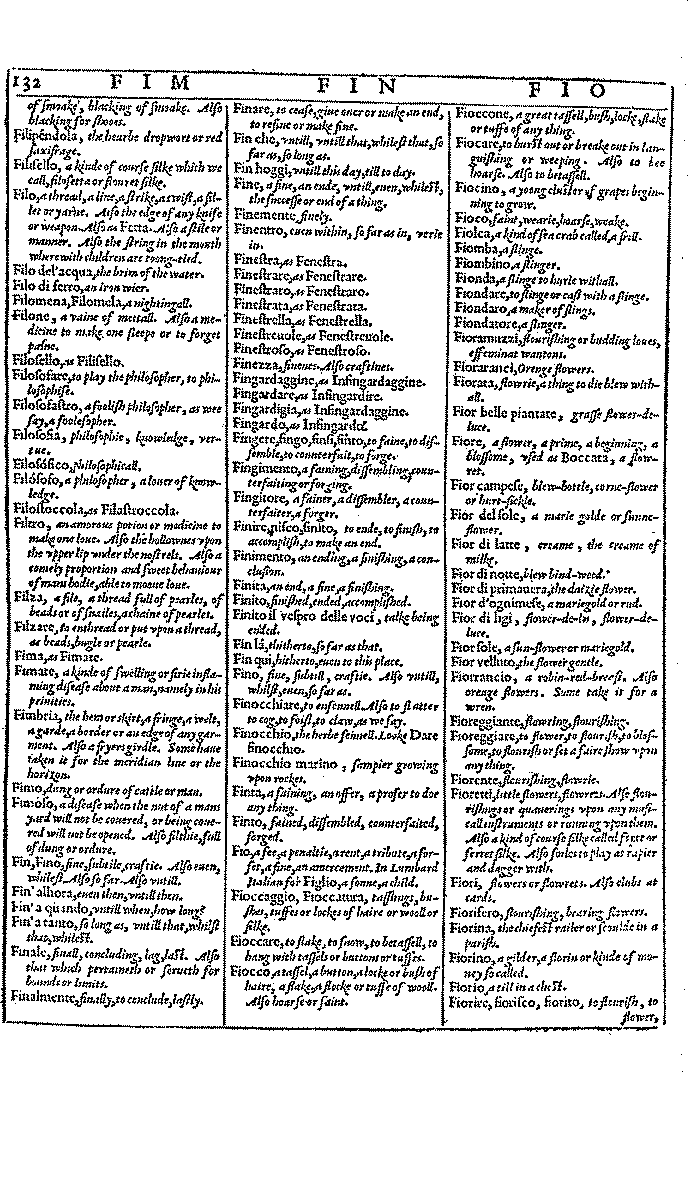 132 FIM FIN FIO
of smoake, blacking of smoake. Also
blacking for shooes.
Filipéndola, the hearbe dropwort or red
saxifrage.
Filisello, a kinde of course silke which we
call, filosetta or flouret silke.
Filo, a thread, a line, a strike, a twist, a fil-
let or yarne. Also the edge of any knife
or weapon. Also as Fetta. Also a stile or
manner. Also the string in the mouth
where with children are toong-tied.
Filo del'acqua, the brim of the water.
Filo di ferro, an iron wier.
Filomena, Filomela, a nightingall.
Filone, a vaine of mettall. Also a me-
dicine to make one sleepe or to forget
paine.
Filosello, as Filisello.
Filosofare, to play the philosopher, to phi-
losophise.
Filosofastro, a foolish philosopher, as wee
say, a foolesopher.
Filosofia, philosophie, knowledge, ver-
tue.
Filosófico, philosophicall.
Filósofo, a philosopher, a louer of know-
ledge.
Filostoccola, as Filastroccola.
Filtro, an amorous potion or medicine to
make one loue. Also the hollownes vpon
the vpper lip vnder the nostrels. Also a
comely proportion and sweet behauiour
of mans bodie, able to mooue loue.
Filza, a file, a thread full of pearles, of
beads or of snailes, a chaine of pearles.
Filzare, to enthread or put vpon a thread,
as beads, bugle or pearle.
Fima, as Fimate.
Fimate, a kinde of swelling or firie infla-
ming disease about a man, namely in his
priuities.
Fimbria, the hem or skirt, a fringe, a welt,
a garde, a border or an edge of any gar-
ment. Also a fryers girdle. Some haue
taken it for the meridian line or the
horizon.
Fimo, dung or ordure of cattle or man.
Fimoso, a disease when the nut of a mans
yard will not be couered, or being coue-
red will not be opened. Also filthie, full
of dung or ordure.
Fin, Fino, fine, subtile, craftie. Also euen,
whilest. Also so far. Also vntill.
Fin' allhora, euen then, vntill then.
Fin' a quando, vntill when, how long?
Fin' a tanto, so long as, vntill that, whilst
that, whilest.
Finale, finall, concluding, lag, last. Also
that which pertaineth or serueth for
bounds or limits.
Finalmente, finally, to conclude, lastly.
Finare, to cease, giue oner or make an end,
to refine or make fine.
Fin che, vntill, vntill that, whilest that, so
far as, so long as.
Fin hoggi, vntill this day, till to day.
Fine, a fine, an ende, vntill, euen, whilest,
the successe or end of a thing.
Finemente, finely.
Finentro, euen within, so far as in, verie
in.
Finestra, as Fenestra.
Finestrare, as Fenestrare.
Finestrato, as Fenestraro.
Finestrata, as Fenestrata.
Finestrella, as Fenestrella.
Finestreuole, as Fenestreuole.
Finestroso, as Fenestroso.
Finezza, finenes. Also craftines.
Fingardaggine, as Infingardaggine.
Fingardare, as Infingardire.
Fingardigia, as Infingardaggine.
Fingardo, as Infingardo.
Fingere, fingo, finsi, finto, to faine, to dis-
semble, to counterfait, to forge.
Fingimento, a faining, dissembling, coun-
terfaiting or forging.
Fingitore, a fainer, a dissembler, a coun-
terfaiter, a forger.
Finire, nisco, finito, to ende, to finish, to
accomplish, to make an end.
Finimento, an ending, a finishing, a con-
clusion.
Finita, an end, a fine, a finishing.
Finito, finished, ended, accomplished.
Finito il vespro delle voci, talke being
ended.
Fin là, thitherto, so far as that.
Fin qui, hitherto, euen to this place.
Fino, fine, subtill, craftie. Also vntill,
whilst, euen, so far as.
Finocchiare, to enfennell. Also to flatter
to cog, to foist, to claw, as we say.
Finocchio, the herbe fennell. Looke Dare
finocchio.
Finocchio marino, sampier growing
vpon rockes.
Finta, a faining, an offer, a profer to doe
any thing.
Finto, fained, dissembled, counterfaited,
forged.
Fio, a fee, a penaltie, a rent, a tribute, a for-
fet, a fine, an amercement. In Lumbard
Italian for Figlio, a sonne, a child.
Fioccaggio, Fioccatura, tasslings, bu-
shes, tuffes or lockes of haire or wooll or
silke.
Fioccare, to flake, to snow, to betassell, to
hang with tassels or buttons or tuffes.
Fiocco, a tassel, a button, a locke or bush of
haire, a flake, a flocke or tuffe of wooll.
Also hoarse or faint.
Fioccone, a great tassell, bush, locke, flake
or tuffe of any thing.
Fiocare, to burst out or breake out in lan-
guishing or weeping. Also to bee
hoarse. Also to betassell.
Fiocino, a young cluster of grapes begin-
ning to grow.
Fioco, faint, wearie, hoarse, weake.
Fiolca, a kind of sea crab called, a frill.
Fiomba, a slinge.
Fiombino, a slinger.
Fionda, a slinge to hurle withall.
Fiondare, to slinge or cast with a slinge.
Fiondaro, a maker of slings.
Fiondatore, a slinger.
Fioramuzzi, flourishing or budding loues,
effeminat wantons.
Fioraranci, Orenge flowers.
Fiorata, flowrie, a thing to die blew with-
all.
Fior belle piantate, grasse flower-de-
luce.
Fiore, a flower, a prime, a beginning, a
blossome, vsed as Boccata, a flow-
ret.
Fior campese, blew-bottle, corne-flower
or hurt-sickle.
Fior del sole, a marie golde or sunne-
flower.
Fior di latte, creame, the creame of
milke.
Fior di notte, blew bind-weed.
Fior di primauera, the daizie flower.
Fior d'ognimese, a mariegold or rud.
Fior di ligi, flower-de-lis, flower-de-
luce.
Fiorsole, a sun-flower or mariegold.
Fior velluto, the flower gentle.
Fiorrancio, a robin-red-breest. Also
orenge flowers. Some take it for a
wren.
Fioreggiante, flowring, flourishing.
Fioreggiare, to flower, to flourish, to blos-
some, to flourish or set a faire show vpon
any thing.
Fiorente, flourishing, flowrie.
Fioretti, little flowers, flowrets. Also flou-
rishings or quauerings vpon any musi-
call instruments or running vpon them.
Also a kind of course silke called foret or
ferret silke. Also foiles to play at rapier
and dagger with.
Fiori, flowers or flowrets. Also clubs at
cards.
Fiorifero, flourishing, bearing flowers.
Fiorina, the chiefest railer or scoulde in a
parish.
Fiorino, a gilder, a florin or kinde of mo-
ney so called.
Fiorio, a till in a chest.
Fiorire, fiorisco, fiorito, to flourish, to
flower,